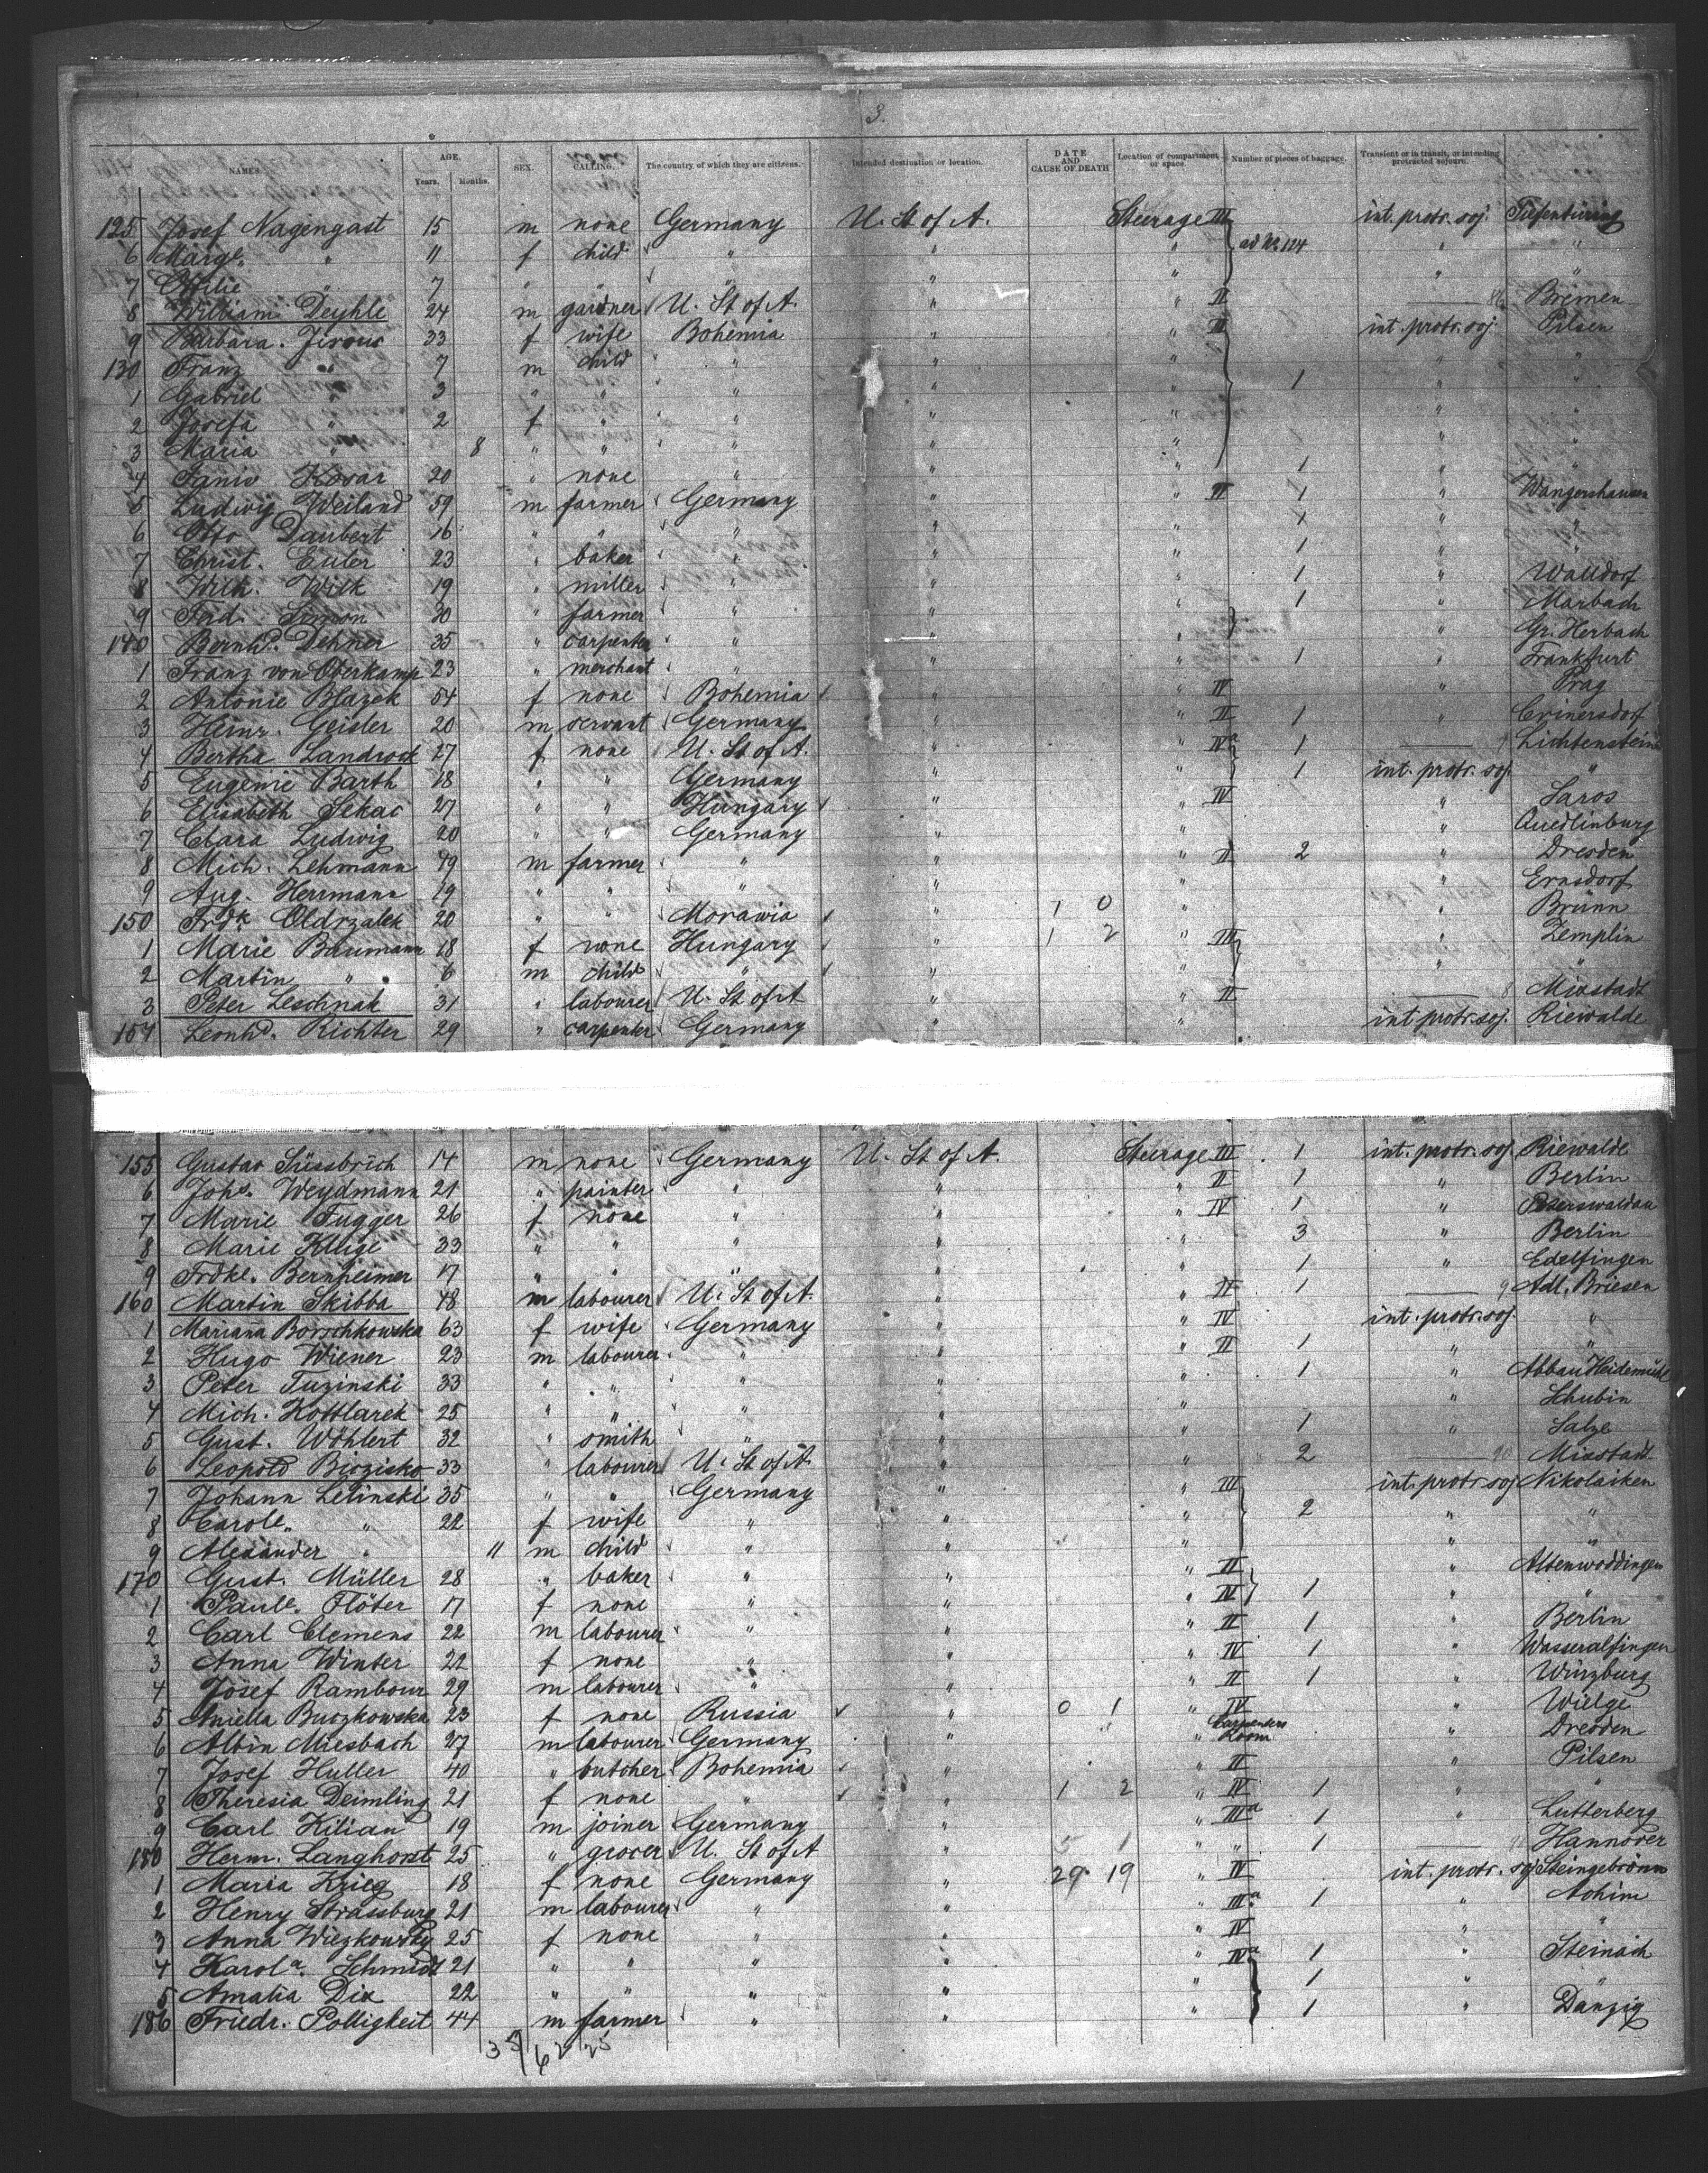 3.
NAMES. AGE. Years. Months. SEX. CALLING. The country of which they are citizens. Intended destination or location. DATE AND CAUSE OF DEATH Location of compartment or space. Number of pieces of baggage. Transient or in transit, or intending protracted sojourn.
125 Josef Nagengast 15 m none Germany U. St of A. Steerage III int. protr. soj.
6 Margt. " 11 f child " " " ad No. 124 " "
7 Ottilie " 7 " " " " " " "
8 William Deyhle 24 m gardner U. St of A. " " II Bremen
9 Barbara Jirous 33 f wife Bohemia " " II int. protr. soj. Pilsen
130 Franz " 7 m child " " " " "
1 Gabriel " 3 " " " " " 1 " "
2 Josefa " 2 f " " " " " "
3 Maria " 8 " " " " " " "
4 Kovar 20 " none " " " 1 " "
5 Ludwig Weiland 59 m farmer Germany " " II 1 " Wangershausen
6 Otto Daubert 16 " " " " " 1 " "
7 Christ. Euler 23 " baker " " " 1 " "
8 Wilh. Wilk 19 " miller " " " 1 " Walldorf
9 Ferd. Simon 30 " farmer " " " 1 " Marbach
140 Bernhd. Dehner 35 " carpenter " " " " Gr. Herbach
1 Franz von Oterkamp 23 " merchant " " " 1 " Frankfurt
2 Antonie Blazek 54 f none Bohemia " " IV " Prag
3 Heinr. Geisler 20 m servant Germany " " II 1 " Crinersdorf
4 Bertha Landrock 27 f none U. St of A. " " IVa 1 Lichtenstein
5 Eugenie Barth 18 " " Germany " " 1 int. protr. soj. "
6 Elisabeth Sekac 27 " " Hungary " " IV " Saros
7 Clara Ludwig 20 " " Germany " " " Quedlinburg
8 Mich. Lehmann 49 m farmer " " " II 2 " Dresden
9 Aug. Herrmann 19 " " " " " " Ernsdorf
150 Frdk. Oldrzalek 20 " " Morawia " 1 0 " " Brünn
1 Marie Baumann 18 f none Hungary " 1 2 " III " Zemplin
2 Martin " 6 m child " " " " "
3 Peter Leschnak 31 " labourer U. St of A " " II Mixstadt
154 Leonhd. Richter 29 " carpenter Germany " " int protr. soj. Riewalde
155 Gustav Süssbrich 14 m none Germany U. St of A. Steerage III 1 int. protr. soj. Riewalde
6 Johs. Weydmann 21 " painter " " " II 1 " Berlin
7 Marie Fugger 26 f none " " " IV 1 " Peterswaldau
8 Marie Kluge 33 " " " " " 3 " Berlin
9 Frdke. Bernheimer 17 " " " " " 1 " Edelfingen
160 Martin Skibba 48 m labourer U. St of A. " " II 1 9 Adl. Briesen
1 Marianna Borschkowska 63 f wife Germany " " IV int. protr. soj. "
2 Hugo Wiener 23 m labourer " " " II 1 " "
3 Peter Tuzinski 33 " " " " " 1 " Abbau Heidemühl
4 Mich. Kottlarek 25 " " " " " " Schubin
5 Gust. Wöhlert 32 " smith " " " 1 " Salze
6 Leopold Biozisko 33 " labourer U. St of A " " 2 Mixstadt
7 Johann Lelinski 35 " " Germany " " III int. protr. soj Nikolaiken
8 Carole. " 22 f wife " " " 2 " "
9 Alexander " 11 m child " " " " "
170 Gust. Müller 28 " baker " " " II " Altenwoddingen
1 Paule. Flöter 17 f none " " " IV 1 " "
2 Carl Clemens 22 m labourer " " " II 1 " Berlin
3 Anna Winter 22 f none " " " IV 1 " Wasseralfingen
4 Josef Rambour 29 m labourer " " " II 1 " Würzburg
5 Aniella Buczkowska 23 f none Russia " 0 1 " IV " Wielge
6 Albin Miesbach 27 m labourer Germany " " Carpenters Room " Dresden
7 Josef Huller 40 " butcher Bohemia " " II " Pilsen
8 Theresia Deimling 21 f none " " 1 2 " IV 1 " "
9 Carl Kilian 19 m joiner Germany " " IIIa 1 " Lutterberg
180 Herm. Langhorst 25 " grocer U. St of A " 5 1 " " 1 Hannover
1 Maria Krieg 18 f none Germany " 29 19 " IV int. protr. soj Steingebronn
2 Henry Strassburg 21 m labourer " " " IIIa 1 " Achim
3 Anna Wiezkowsky 25 f none " " " IV " "
4 Karola. Schmidt 21 " " " " " IVa 1 " Steinach
5 Amalia Dix 22 " " " " " 1 " "
186 Friedr. Polligkeit 44 m farmer " " " 1 " Danzig
35/62 25